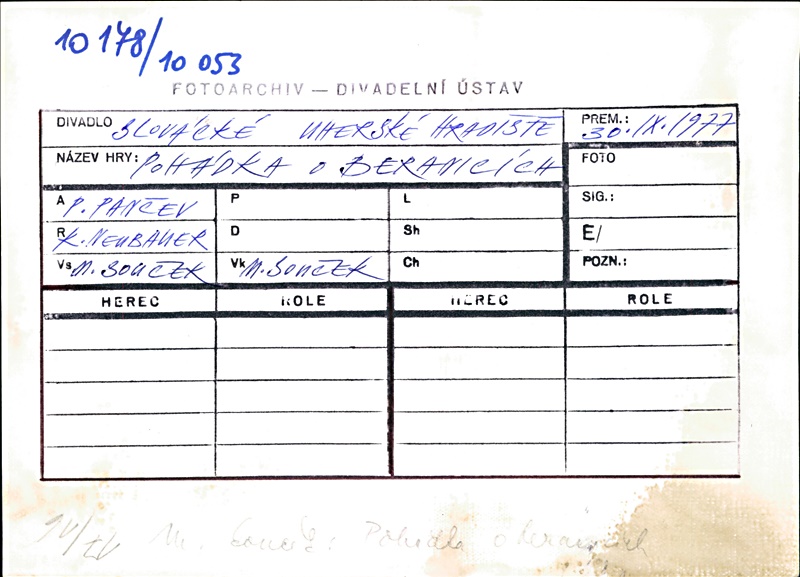 10 178/10 053
FOTOARCHIV — DIVADELNÍ ÚSTAV
DIVADLO SLOVÁCKÉ UHERSKÉ HRADIŠTĚ PREM.: 30.IX.1977
NÁZEV HRY: POHÁDKA O BERANICÍCH FOTO
A P. PANČEV P L SIG.:
R K. NEUBAUER D Sh E/
Vs M. SOUČEK Vk M. SOUČEK Ch POZN.:
HEREC ROLE HEREC ROLE
M. Souček: Pohádka o beranicích